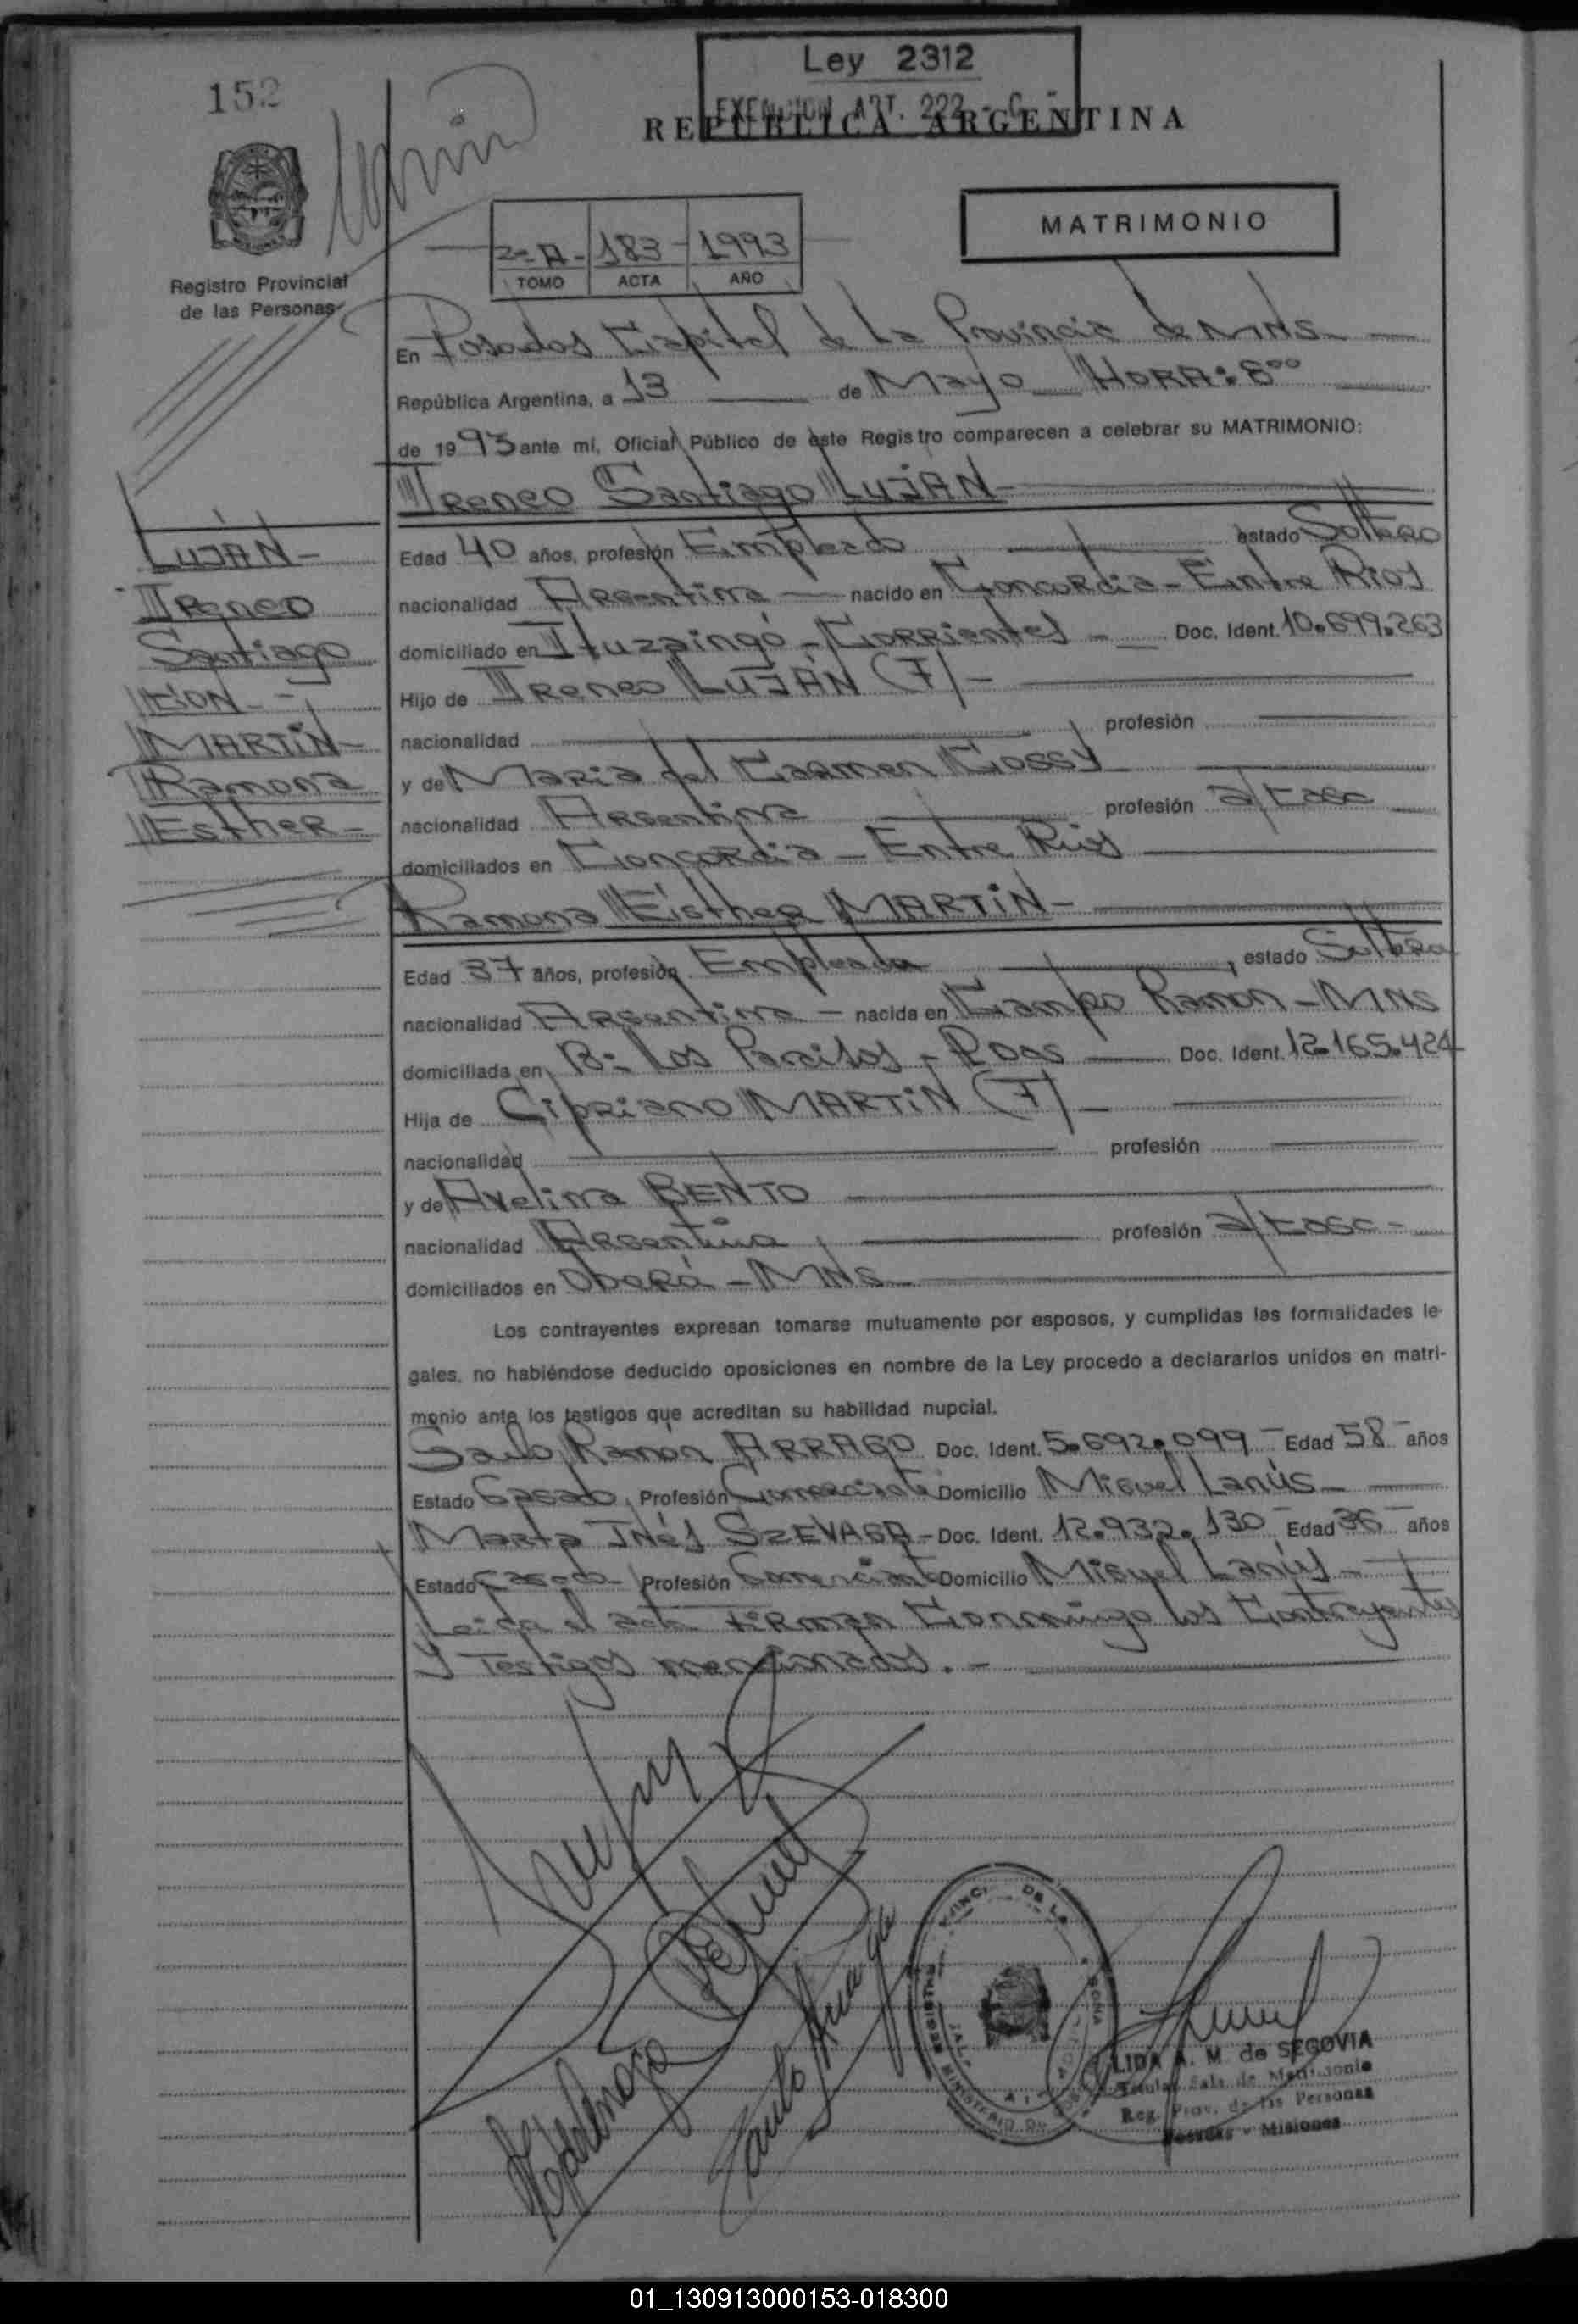 Ley 2312
EXENCION ART. 222 - C.
152
REPUBLICA ARGENTINA
MATRIMONIO
2= A - 183 - 1993
TOMO ACTA AÑO
Registro Provincial
de las Personas
En Posadas Capital de La Provincia de MNS
República Argentina, a 13 de Mayo HORA: 8°°
de 1993 ante mí, Oficial Público de este Registro comparecen a celebrar su MATRIMONIO:
Ireneo Santiago LUJÁN
Edad 40 años, profesión Empleado estado Soltero
nacionalidad Argentina nacido en Concordia - Entre Rios
domiciliado en Ituzaingó - Corrientes - Doc. Ident. 10.699.263
Hijo de Ireneo LUJÁN (F) -
nacionalidad profesión
y de Maria del Carmen Gossy
nacionalidad Argentina profesión a/casa
domiciliados en Concordia - Entre Rios
LUJÁN -
Ireneo
Santiago
CON -
MARTIN -
Ramona
Esther -
Ramona Esther MARTIN -
Edad 37 años, profesión Empleada, estado Soltera
nacionalidad Argentina - nacida en Campo Ramon - MNS
domiciliada en B= Los Paraisos - Pdas Doc. Ident. 12.165.424
Hija de Cipriano MARTIN (F) -
nacionalidad profesión
y de Avelina BENTO
nacionalidad Argentina, profesión a/casa -
domiciliados en Oberá - MNS
Los contrayentes expresan tomarse mutuamente por esposos, y cumplidas las formalidades le-
gales, no habiéndose deducido oposiciones en nombre de la Ley procedo a declararlos unidos en matri-
monio ante los testigos que acreditan su habilidad nupcial.
Saulo Ramón ARRAGO Doc. Ident. 5.692.099 - Edad 58 años
Estado Casado, Profesión Comerciante Domicilio Miguel Lanús -
Marta Inés SZEVAGA - Doc. Ident. 12.932.130 - Edad 36 años
Estado Casada - Profesión Comerciante Domicilio Miguel Lanús -
Leida el acta Firman Conmigo los Contrayentes
y Testigos mencionados. -
LIDA A. M. de SEGOVIA
Titular Sala de Matrimonio
Reg. Prov. de las Personas
Posadas - Misiones
01_130913000153-018300